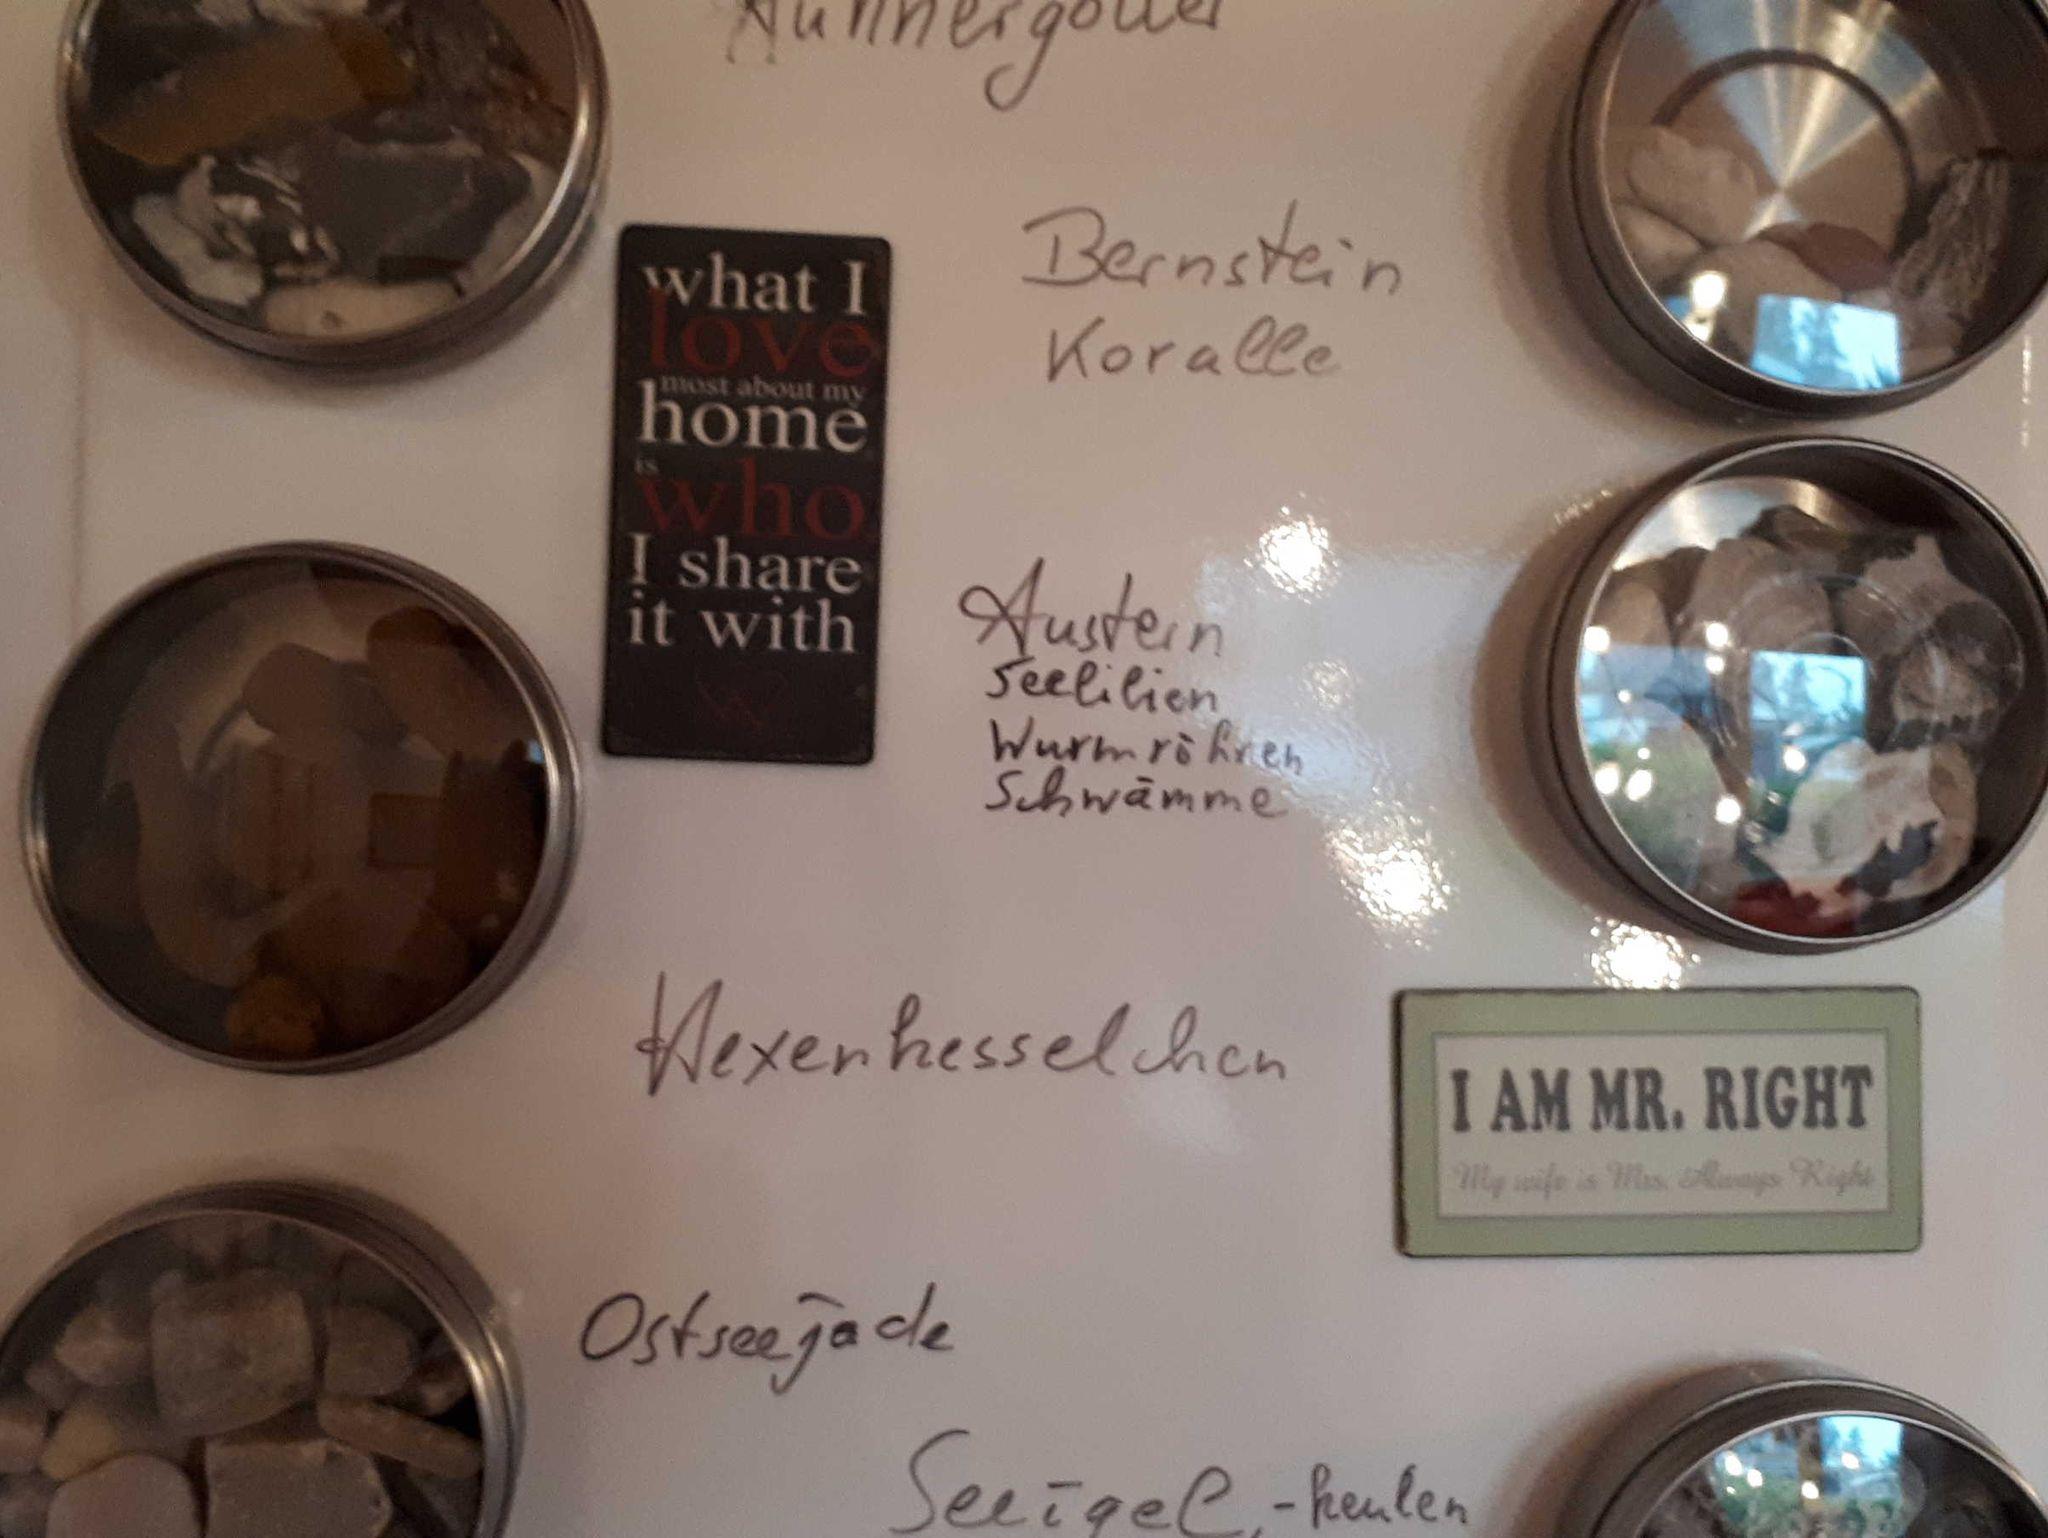 Hühnergötter
Bernstein
Koralle
what I
love
most about my
home
is
who
I share
it with
Austern
Seelilien
Wurmröhren
Schwämme
Hexenkesselchen
I AM MR. RIGHT
My wife is Mrs. Always Right
Ostseejade
Seeigel, -keulen